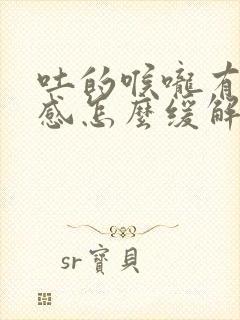 吐的喉嚨有
感怎麼緩解
sr寶貝